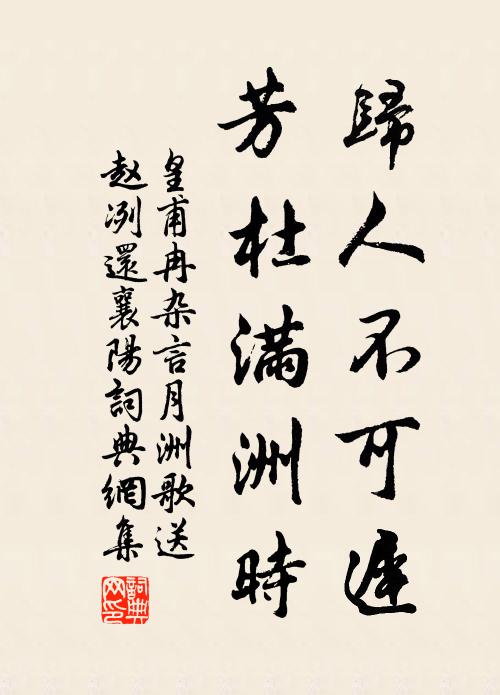 歸人不可遲
芳杜滿洲時
皇甫冉杂言月洲歌送
赵冽還襄陽詞典網集
詞典网印